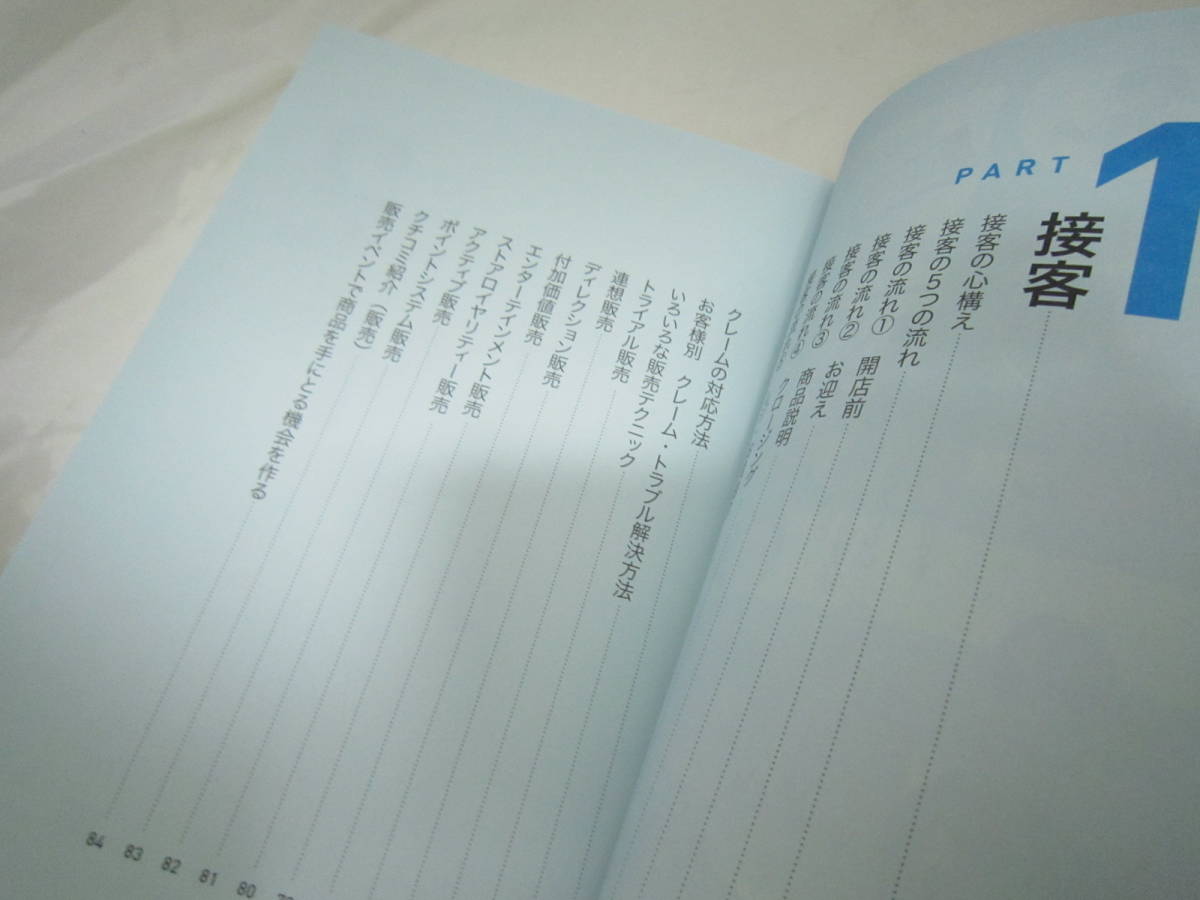 PART 1
接客
接客の心構え
接客の5つの流れ
接客の流れ① 開店前
接客の流れ② お迎え
接客の流れ③ 商品説明
クロージング
クレームの対応方法
お客様別 クレーム・トラブル解決方法
いろいろな販売テクニック
トライアル販売
連想販売
ディレクション販売
付加価値販売
エンターテインメント販売
ストアロイヤリティー販売
アクティブ販売
ポイントシステム販売
クチコミ紹介(販売)
販売イベントで商品を手にとる機会を作る
80
81
82
83
84